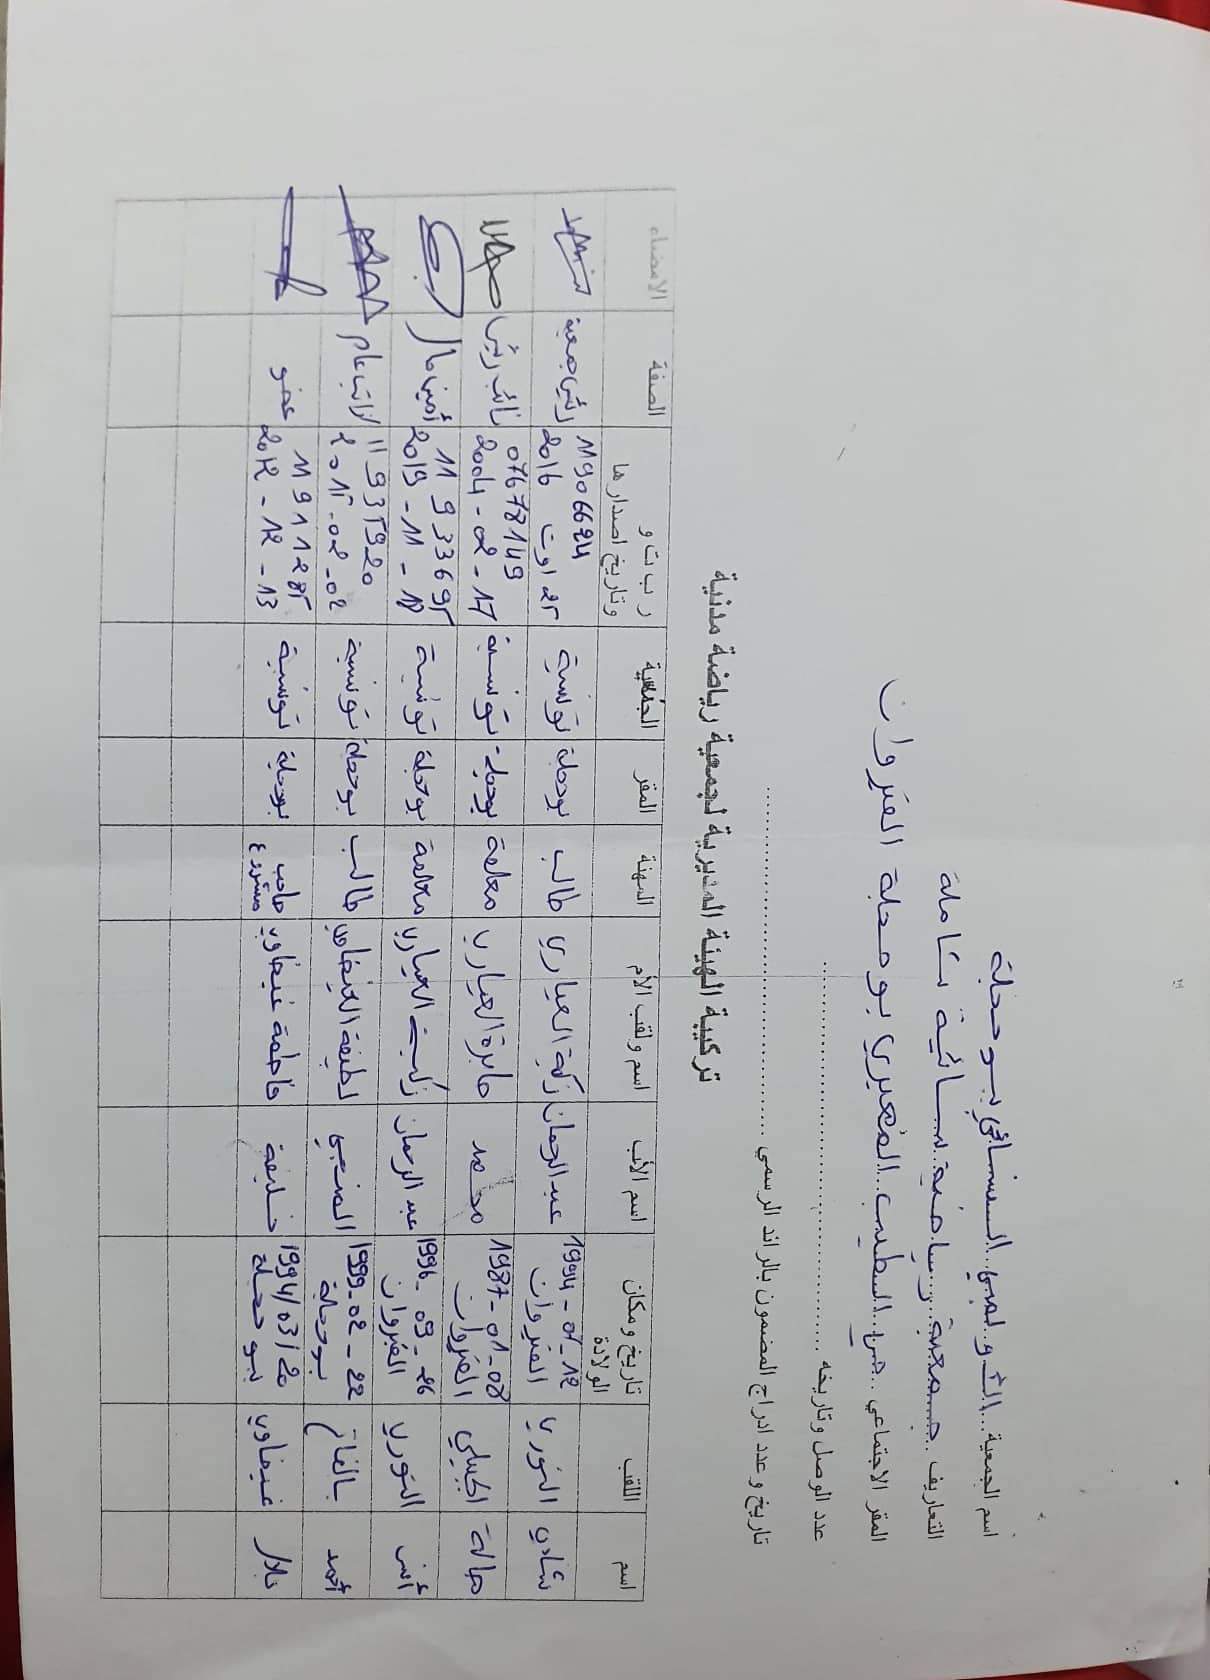 اسم الجمعية ... الأولمبي النسائي بوحجلة
التعاريف جمعية رياضية نسائية شاملة
المقر الاجتماعي حي الطيب المهيري بوحجلة القيروان
عدد الوصل وتاريخه ........................
تاريخ وعدد ادراج المضمون بالرائد الرسمي ........................
تركيبة الهيئة المديرية لجمعية رياضة مدنية
اسم اللقب تاريخ ومكان الولادة اسم الأب اسم ولقب الأم المهنة المقر الجنسية ر ب ت و وتاريخ اصدارها الصفة الامضاء
شادي النوري 12-07-1994 القيروان عبد الرحمان زكية العياري طالب بوحجلة تونسية 11906624 25 اوت 2016 رئيس جمعية
هالة الجبيلي 1987-01-08 القيروان محمد صابرة العياري معلمة بوحجلة تونسية 07678149 2004-02-17 نائب رئيس
أنس النوري 1996-09-26 القيروان عبد الرحمان زكية العياري معلمة بوحجلة تونسية 11933695 2019-11-18 أمين مال
أحمد بالفالح 1999-02-22 بوحجلة المنجي لطيفة الغيضاوي طالب بوحجلة تونسية 11935920 2015-02-02 كاتب عام
بلال غيضاوي 1994/03/20 بوحجلة خليفة فاطمة غيضاوي صاحب مشروع بوحجلة تونسية 11911285 2012-12-13 عضو